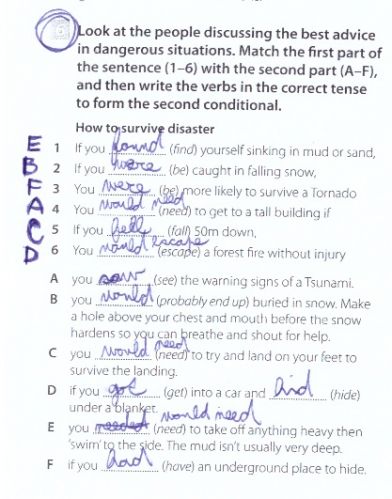 Look at the people discussing the best advice
in dangerous situations. Match the first part of
the sentence (1–6) with the second part (A–F),
and then write the verbs in the correct tense
to form the second conditional.
How to survive disaster
E 1 If you found (find) yourself sinking in mud or sand,
B 2 If you were (be) caught in falling snow,
F 3 You were (be) more likely to survive a Tornado
A 4 You would need (need) to get to a tall building if
C 5 If you fell (fall) 50m down,
D 6 You would escape (escape) a forest fire without injury
A you saw (see) the warning signs of a Tsunami.
B you would (probably end up) buried in snow. Make
a hole above your chest and mouth before the snow
hardens so you can breathe and shout for help.
C you would need (need) to try and land on your feet to
survive the landing.
D if you got (get) into a car and hid (hide)
under a blanket.
would need
E you needed (need) to take off anything heavy then
'swim' to the side. The mud isn't usually very deep.
F if you had (have) an underground place to hide.